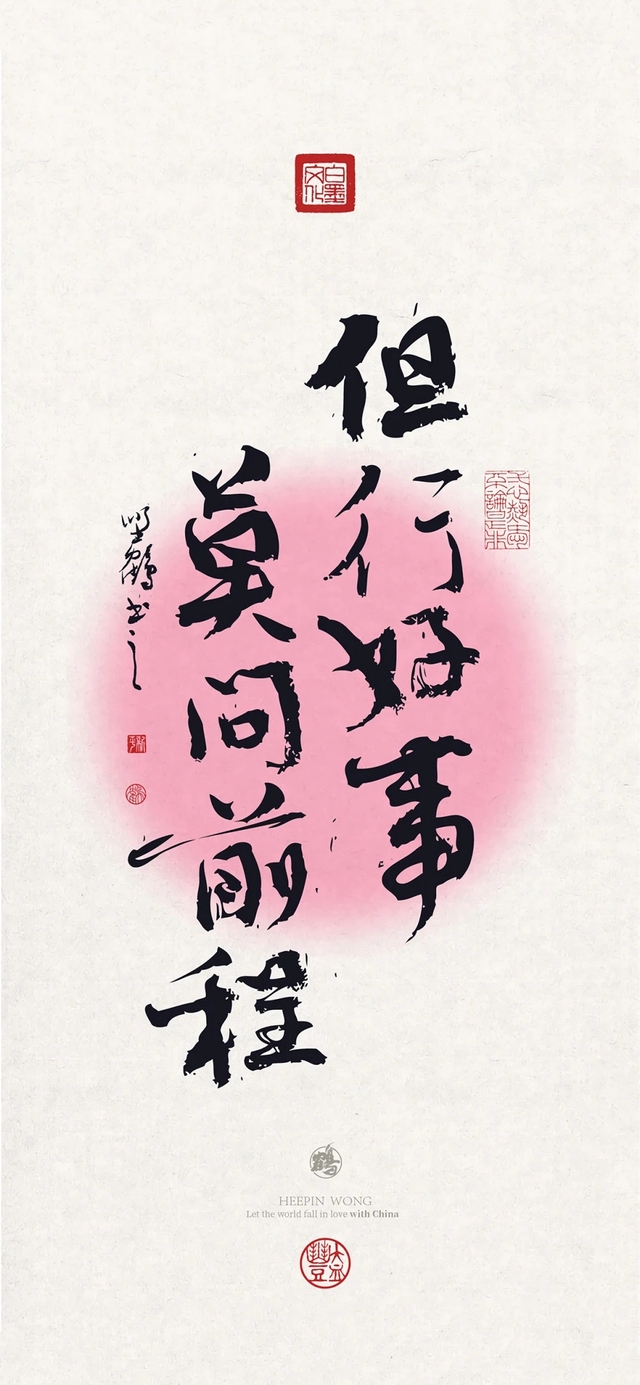 白墨
文化
但行好事
莫问前程
HEEPIN WONG
Let the world fall in love with China